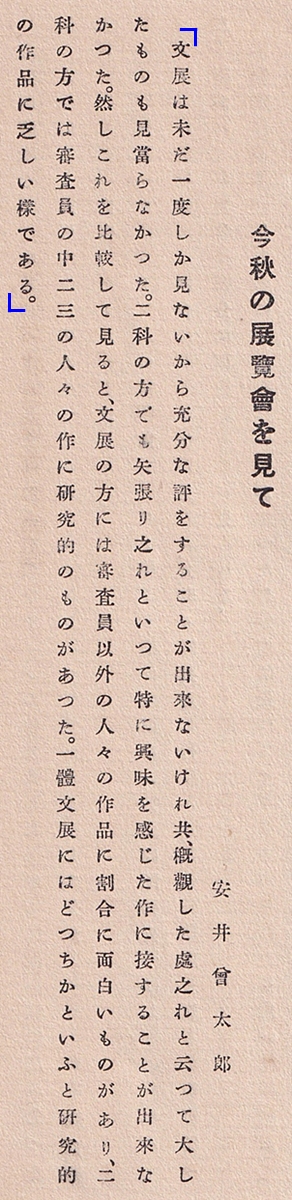 今秋の展覽會を見て
安井曾太郎
文展は未だ一度しか見ないから充分な評をすることが出來ないけれ共、槪觀した處之れと云つて大し
たものも見當らなかつた。二科の方でも矢張り之れといつて特に興味を感じた作に接することが出來な
かつた。然しこれを比較して見ると、文展の方には審査員以外の人々の作品に割合に面白いものがあり、二
科の方では審査員の中二三の人々の作に硏究的のものがあつた。一體文展にはどつちかといふと硏究的
の作品に乏しい樣である。